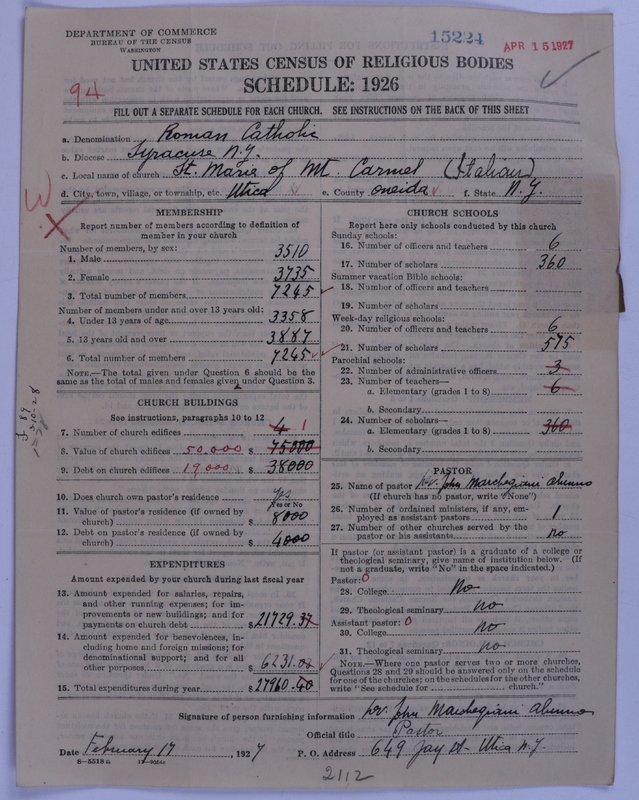 DEPARTMENT OF COMMERCE
BUREAU OF THE CENSUS
WASHINGTON
15224
APR 15 1927
UNITED STATES CENSUS OF RELIGIOUS BODIES
SCHEDULE: 1926
94
FILL OUT A SEPARATE SCHEDULE FOR EACH CHURCH. SEE INSTRUCTIONS ON THE BACK OF THIS SHEET
a. Denomination Roman Catholic
b. Diocese Syracuse N.Y.
c. Local name of church St. Marie of Mt. Carmel (Italian)
d. City, town, village, or township, etc. Utica e. County Oneida f. State N.Y.
W
X
MEMBERSHIP
Report number of members according to definition of
member in your church
Number of members, by sex:
1. Male 3510
2. Female 3735
3. Total number of members 7245
Number of members under and over 13 years old:
4. Under 13 years of age 3358
5. 13 years old and over 3887
6. Total number of members 7245
NOTE.—The total given under Question 6 should be the
same as the total of males and females given under Question 3.
CHURCH BUILDINGS
See instructions, paragraphs 10 to 12
7. Number of church edifices 4 1
8. Value of church edifices 50.000 $ 75000
9. Debt on church edifices 19000 $ 38000
10. Does church own pastor's residence yes
Yes or No
11. Value of pastor's residence (if owned by
church) $ 8000
12. Debt on pastor's residence (if owned by
church) $ 4000
EXPENDITURES
Amount expended by your church during last fiscal year
13. Amount expended for salaries, repairs,
and other running expenses; for im-
provements or new buildings; and for
payments on church debt $ 21729.37
14. Amount expended for benevolences, in-
cluding home and foreign missions; for
denominational support; and for all
other purposes $ 6231.03
15. Total expenditures during year $ 27960.40
CHURCH SCHOOLS
Report here only schools conducted by this church
Sunday schools:
16. Number of officers and teachers 6
17. Number of scholars 360
Summer vacation Bible schools:
18. Number of officers and teachers
19. Number of scholars
Week-day religious schools:
20. Number of officers and teachers 6
21. Number of scholars 575
Parochial schools:
22. Number of administrative officers 3
23. Number of teachers—
a. Elementary (grades 1 to 8) 6
b. Secondary
24. Number of scholars—
a. Elementary (grades 1 to 8) 360
b. Secondary
PASTOR
25. Name of pastor Rev. John Marchegiani Alunno
(If church has no pastor, write "None")
26. Number of ordained ministers, if any, em-
ployed as assistant pastors 1
27. Number of other churches served by the
pastor or his assistants no
If pastor (or assistant pastor) is a graduate of a college or
theological seminary, give name of institution below. (If
not a graduate, write "No" in the space indicated.)
Pastor: 0
28. College No
29. Theological seminary no
Assistant pastor: 0
30. College no
31. Theological seminary no
NOTE.—Where one pastor serves two or more churches,
Questions 28 and 29 should be answered only on the schedule
for one of the churches; on the schedules for the other churches,
write "See schedule for church."
Signature of person furnishing information Rev. John Marchegiani Alunno
Official title Pastor
Date February 17 , 1927 P. O. Address 649 Jay St. Utica N.Y.
8—5518a
2112